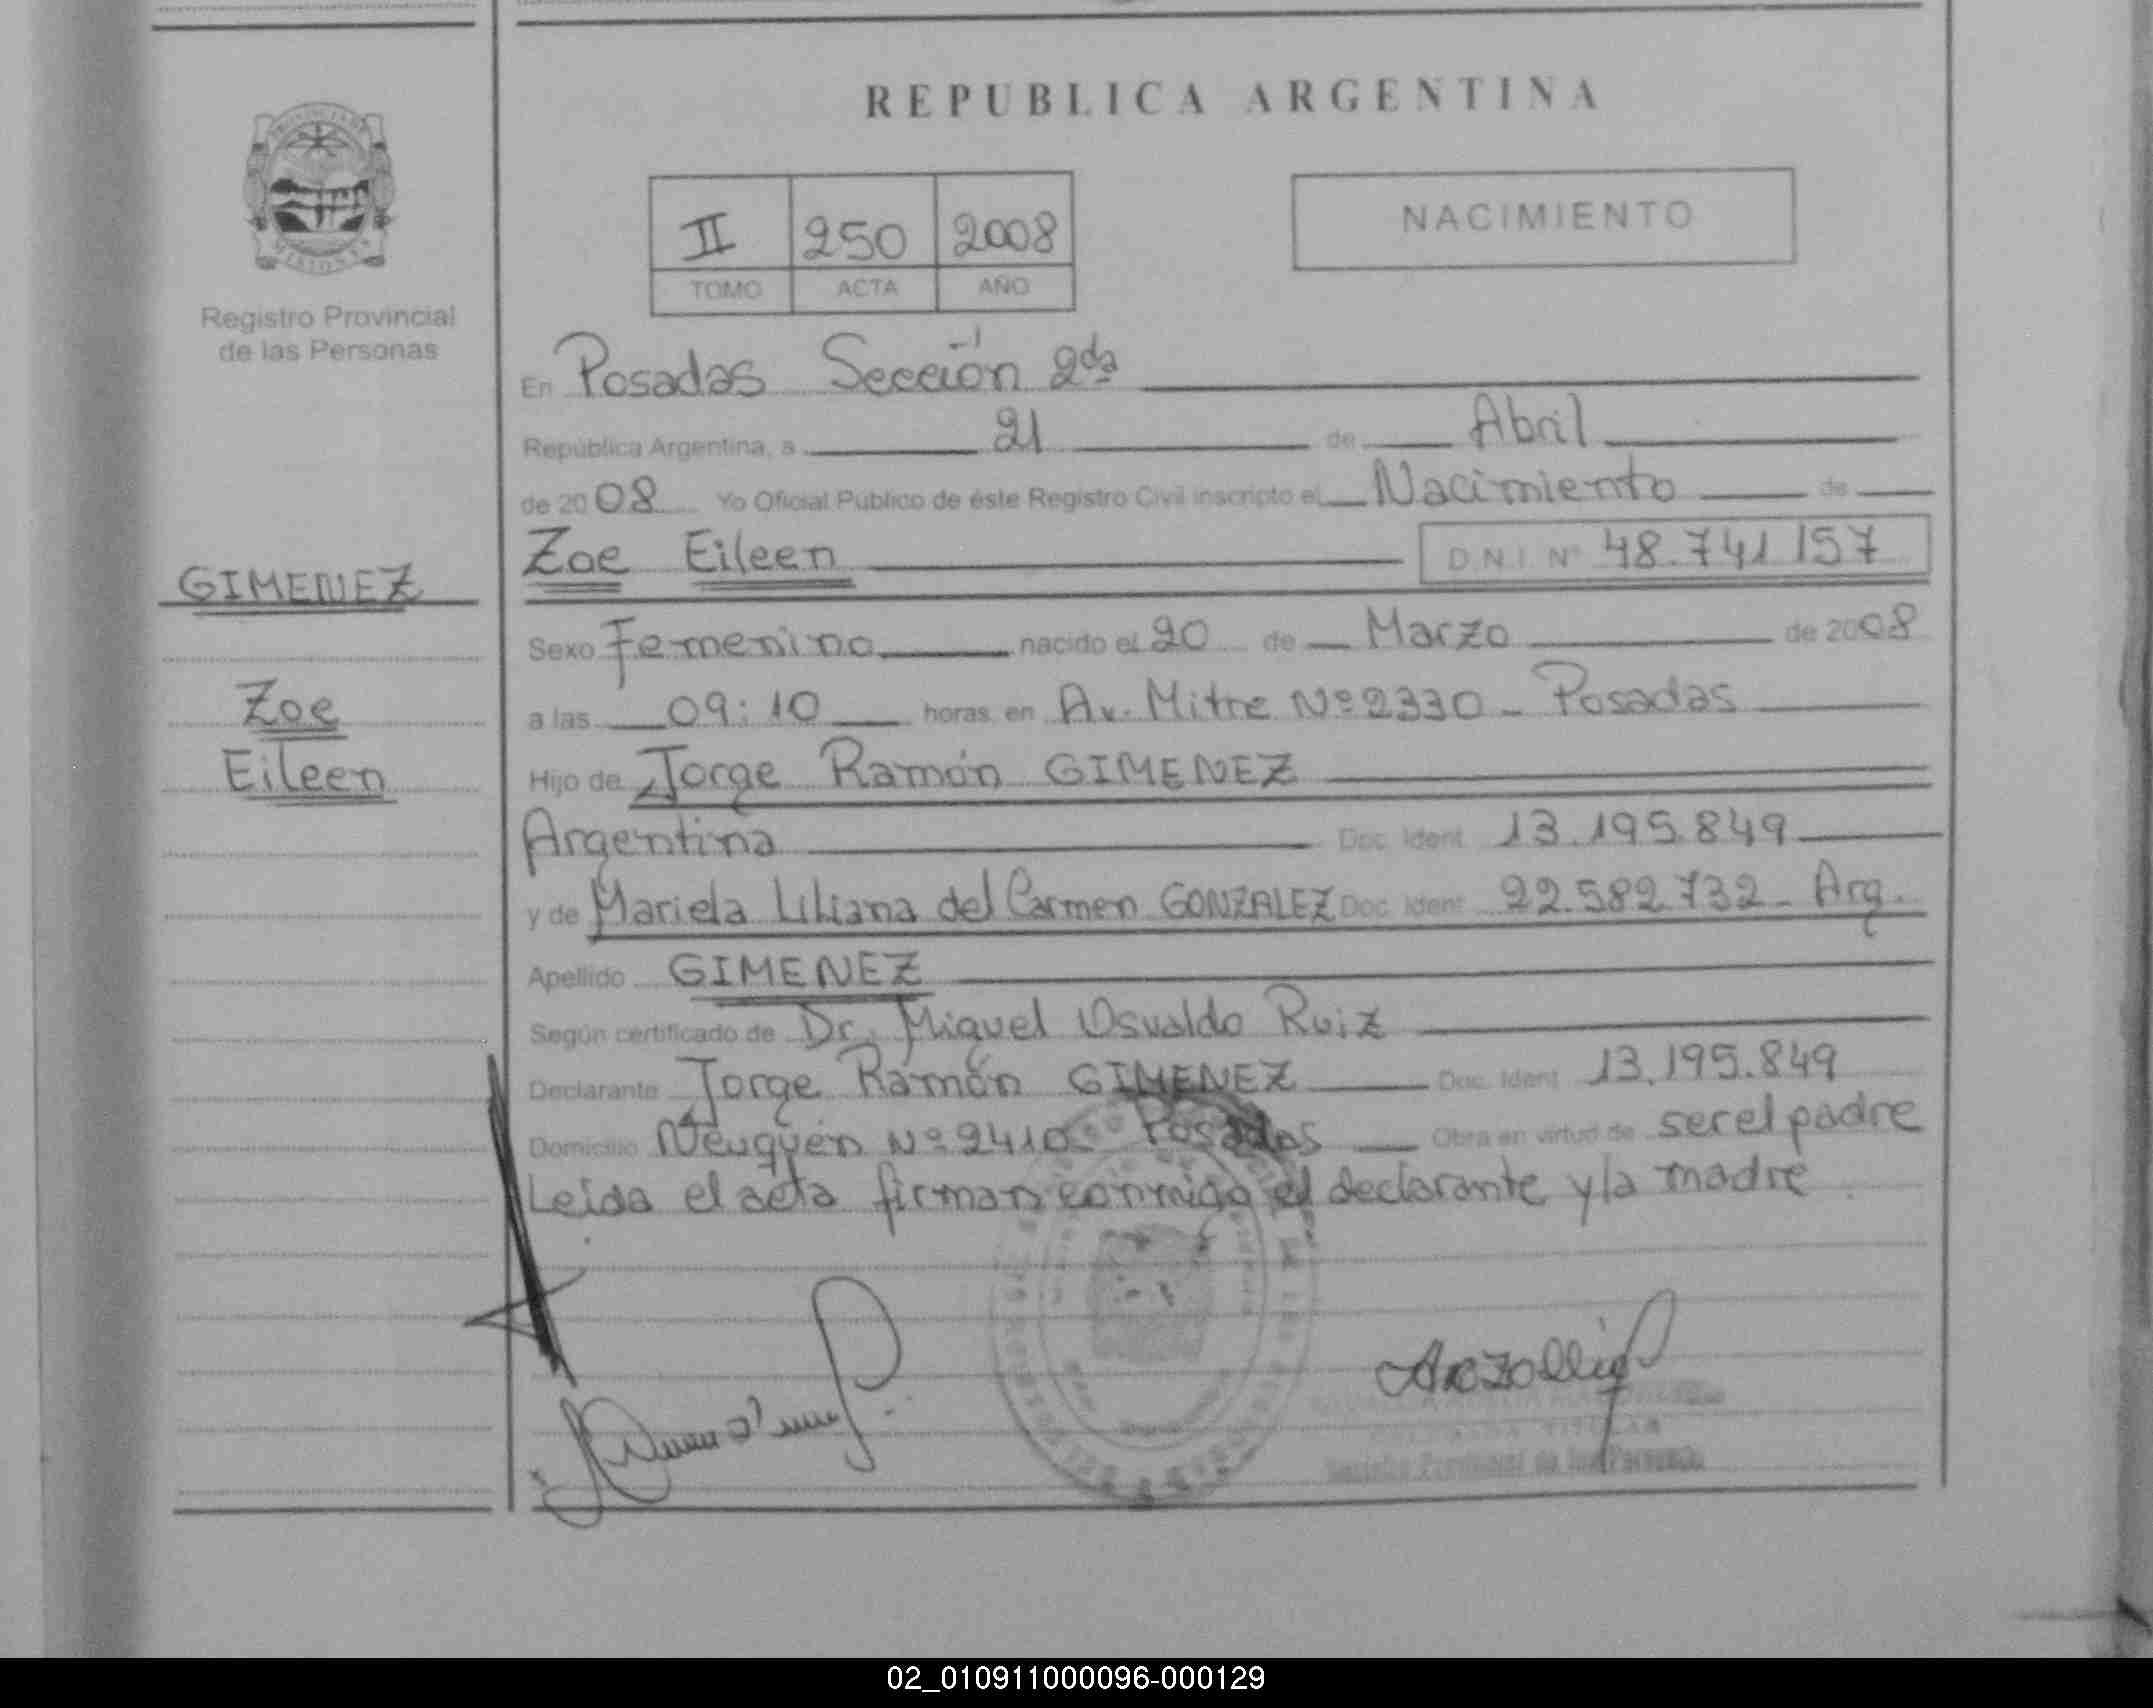 REPUBLICA ARGENTINA
II 250 2008
TOMO ACTA AÑO
NACIMIENTO
Registro Provincial
de las Personas
En Posadas Sección 2da
República Argentina, a 21 de Abril
de 2008 Yo Oficial Público de éste Registro Civil inscripto el Nacimiento de
Zoe Eileen D.N.I. Nº 48.741.157
GIMENEZ
Zoe
Eileen
Sexo Femenino nacido el 20 de Marzo de 2008
a las 09:10 horas en Av. Mitre Nº 2330 - Posadas
Hijo de Jorge Ramón GIMENEZ
Argentina Doc. Ident. 13.195.849
y de Mariela Liliana del Carmen GONZALEZ Doc. Ident. 22.582.732 - Arg.
Apellido GIMENEZ
Según certificado de Dr. Miguel Osvaldo Ruiz
Declarante Jorge Ramón GIMENEZ Doc. Ident. 13.195.849
Domicilio Neuquén Nº 2410 - Posadas Obra en virtud de ser el padre
Leída el acta firman conmigo el declarante y la madre.
Registro Provincial de las Personas
02_010911000096-000129